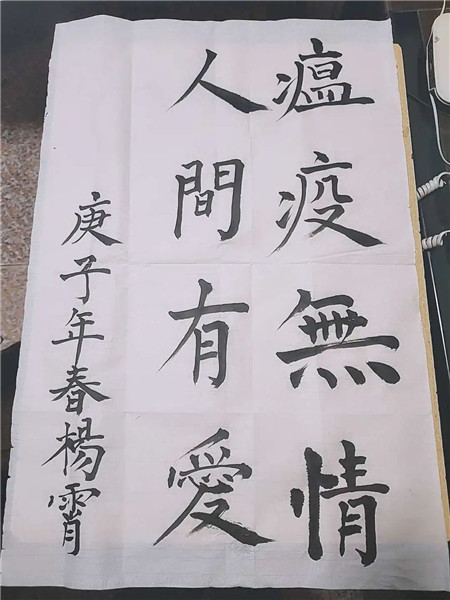 瘟疫無情
人間有愛
庚子年春楊霄